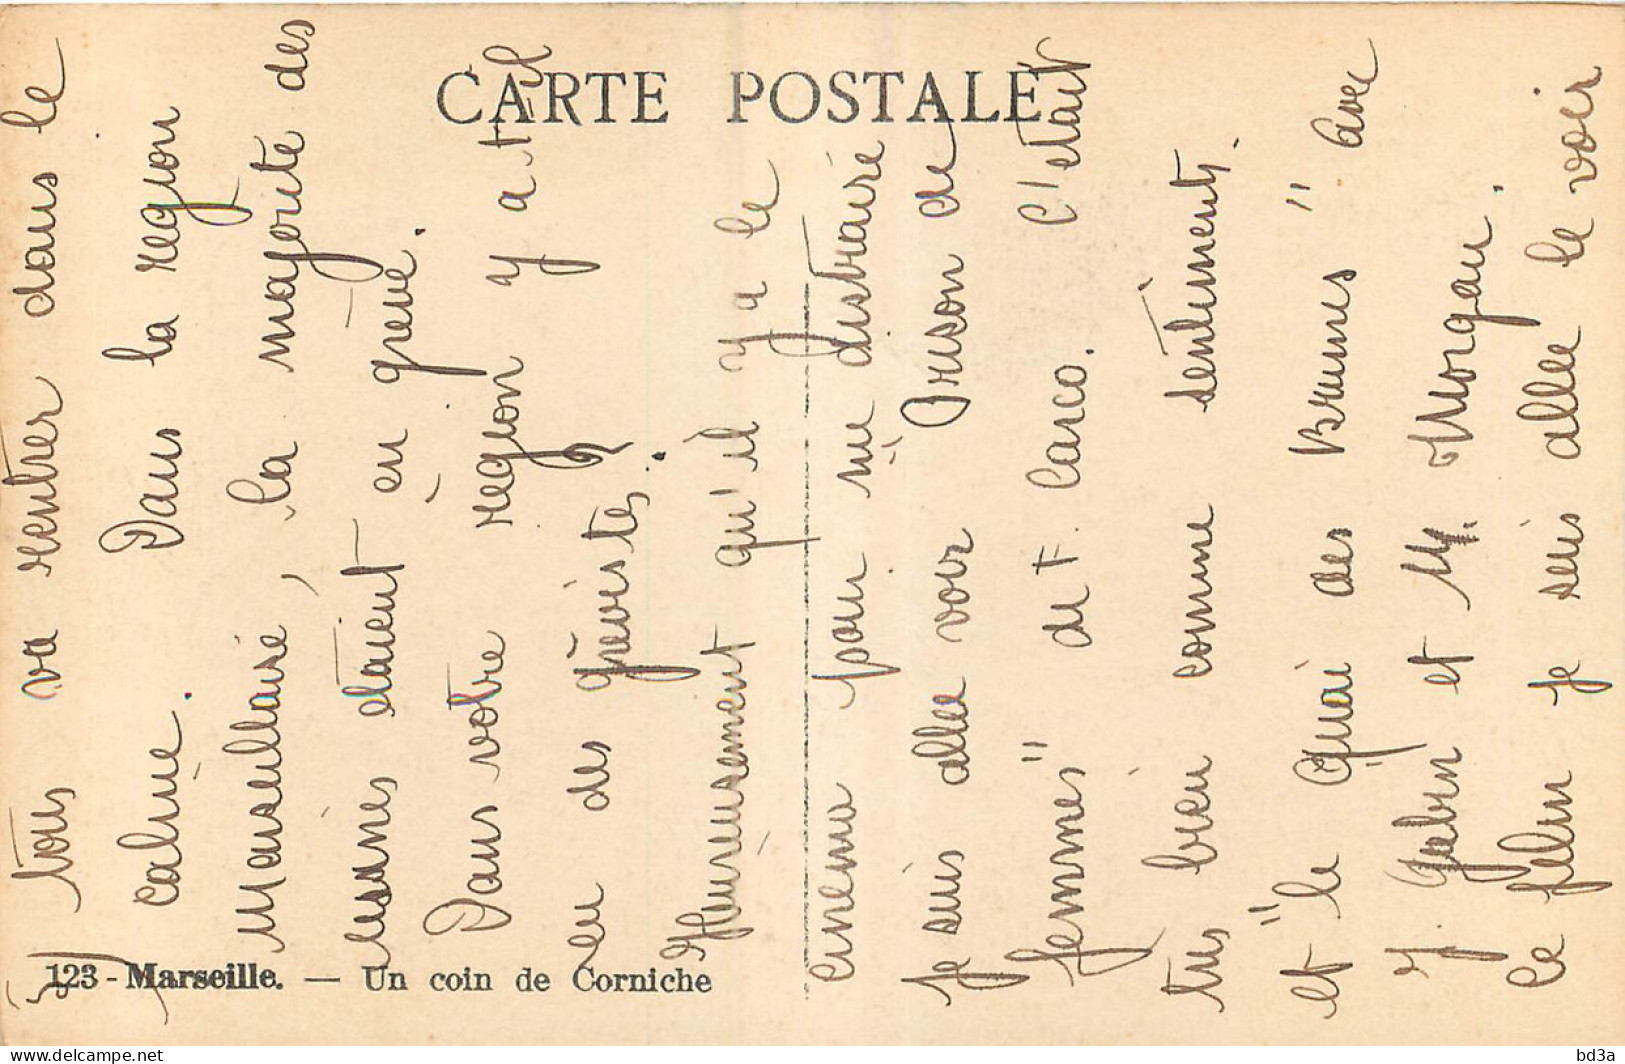 CARTE POSTALE
123 - Marseille. — Un coin de Corniche
tous va rentrer dans le
calme. Dans la region
Marseillaise, la majorite des
usines etaient en grève.
Dans votre region y a t il
eu des grèvistes ?
Heureusement qu'il y a le
cinema pour me distraire
Je suis allee voir Prison de
femmes" de F. Carco. C'etait
tres bien comme sentiments.
et "le Quai des Brumes" avec
J. Gabin et M. Morgan.
Ce film je suis allee le voir
bd3a